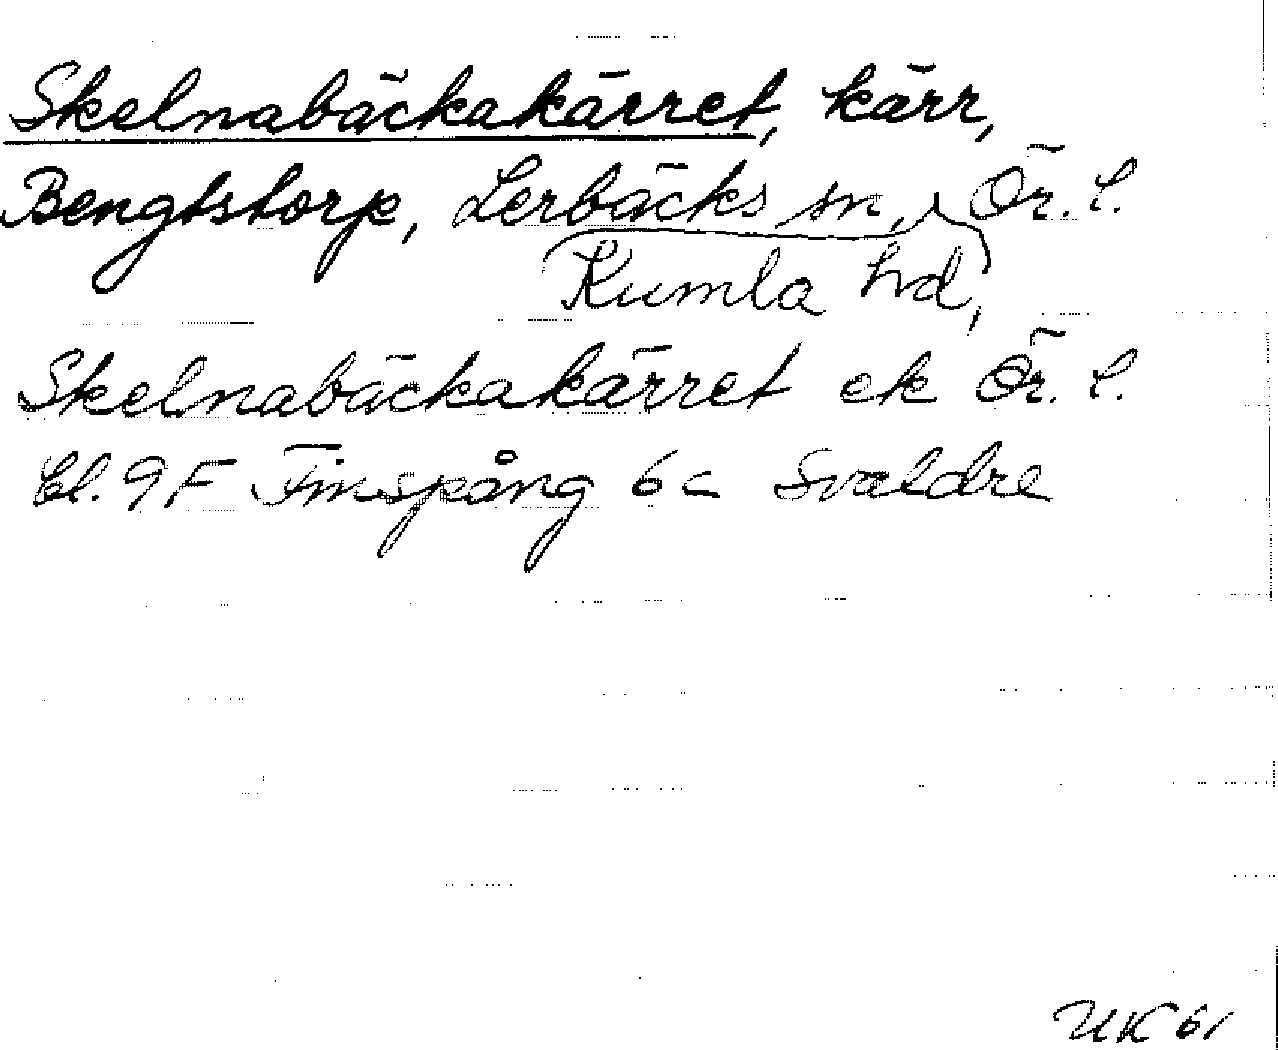 Skelnabäckakärret, kärr,
Bengtstorp, Lerbäcks sn, Ör. l.
Kumla hd,
Skelnabäckakärret ek Ör. l.
bl. 9F Finspång 6c Svaldre
UK 61